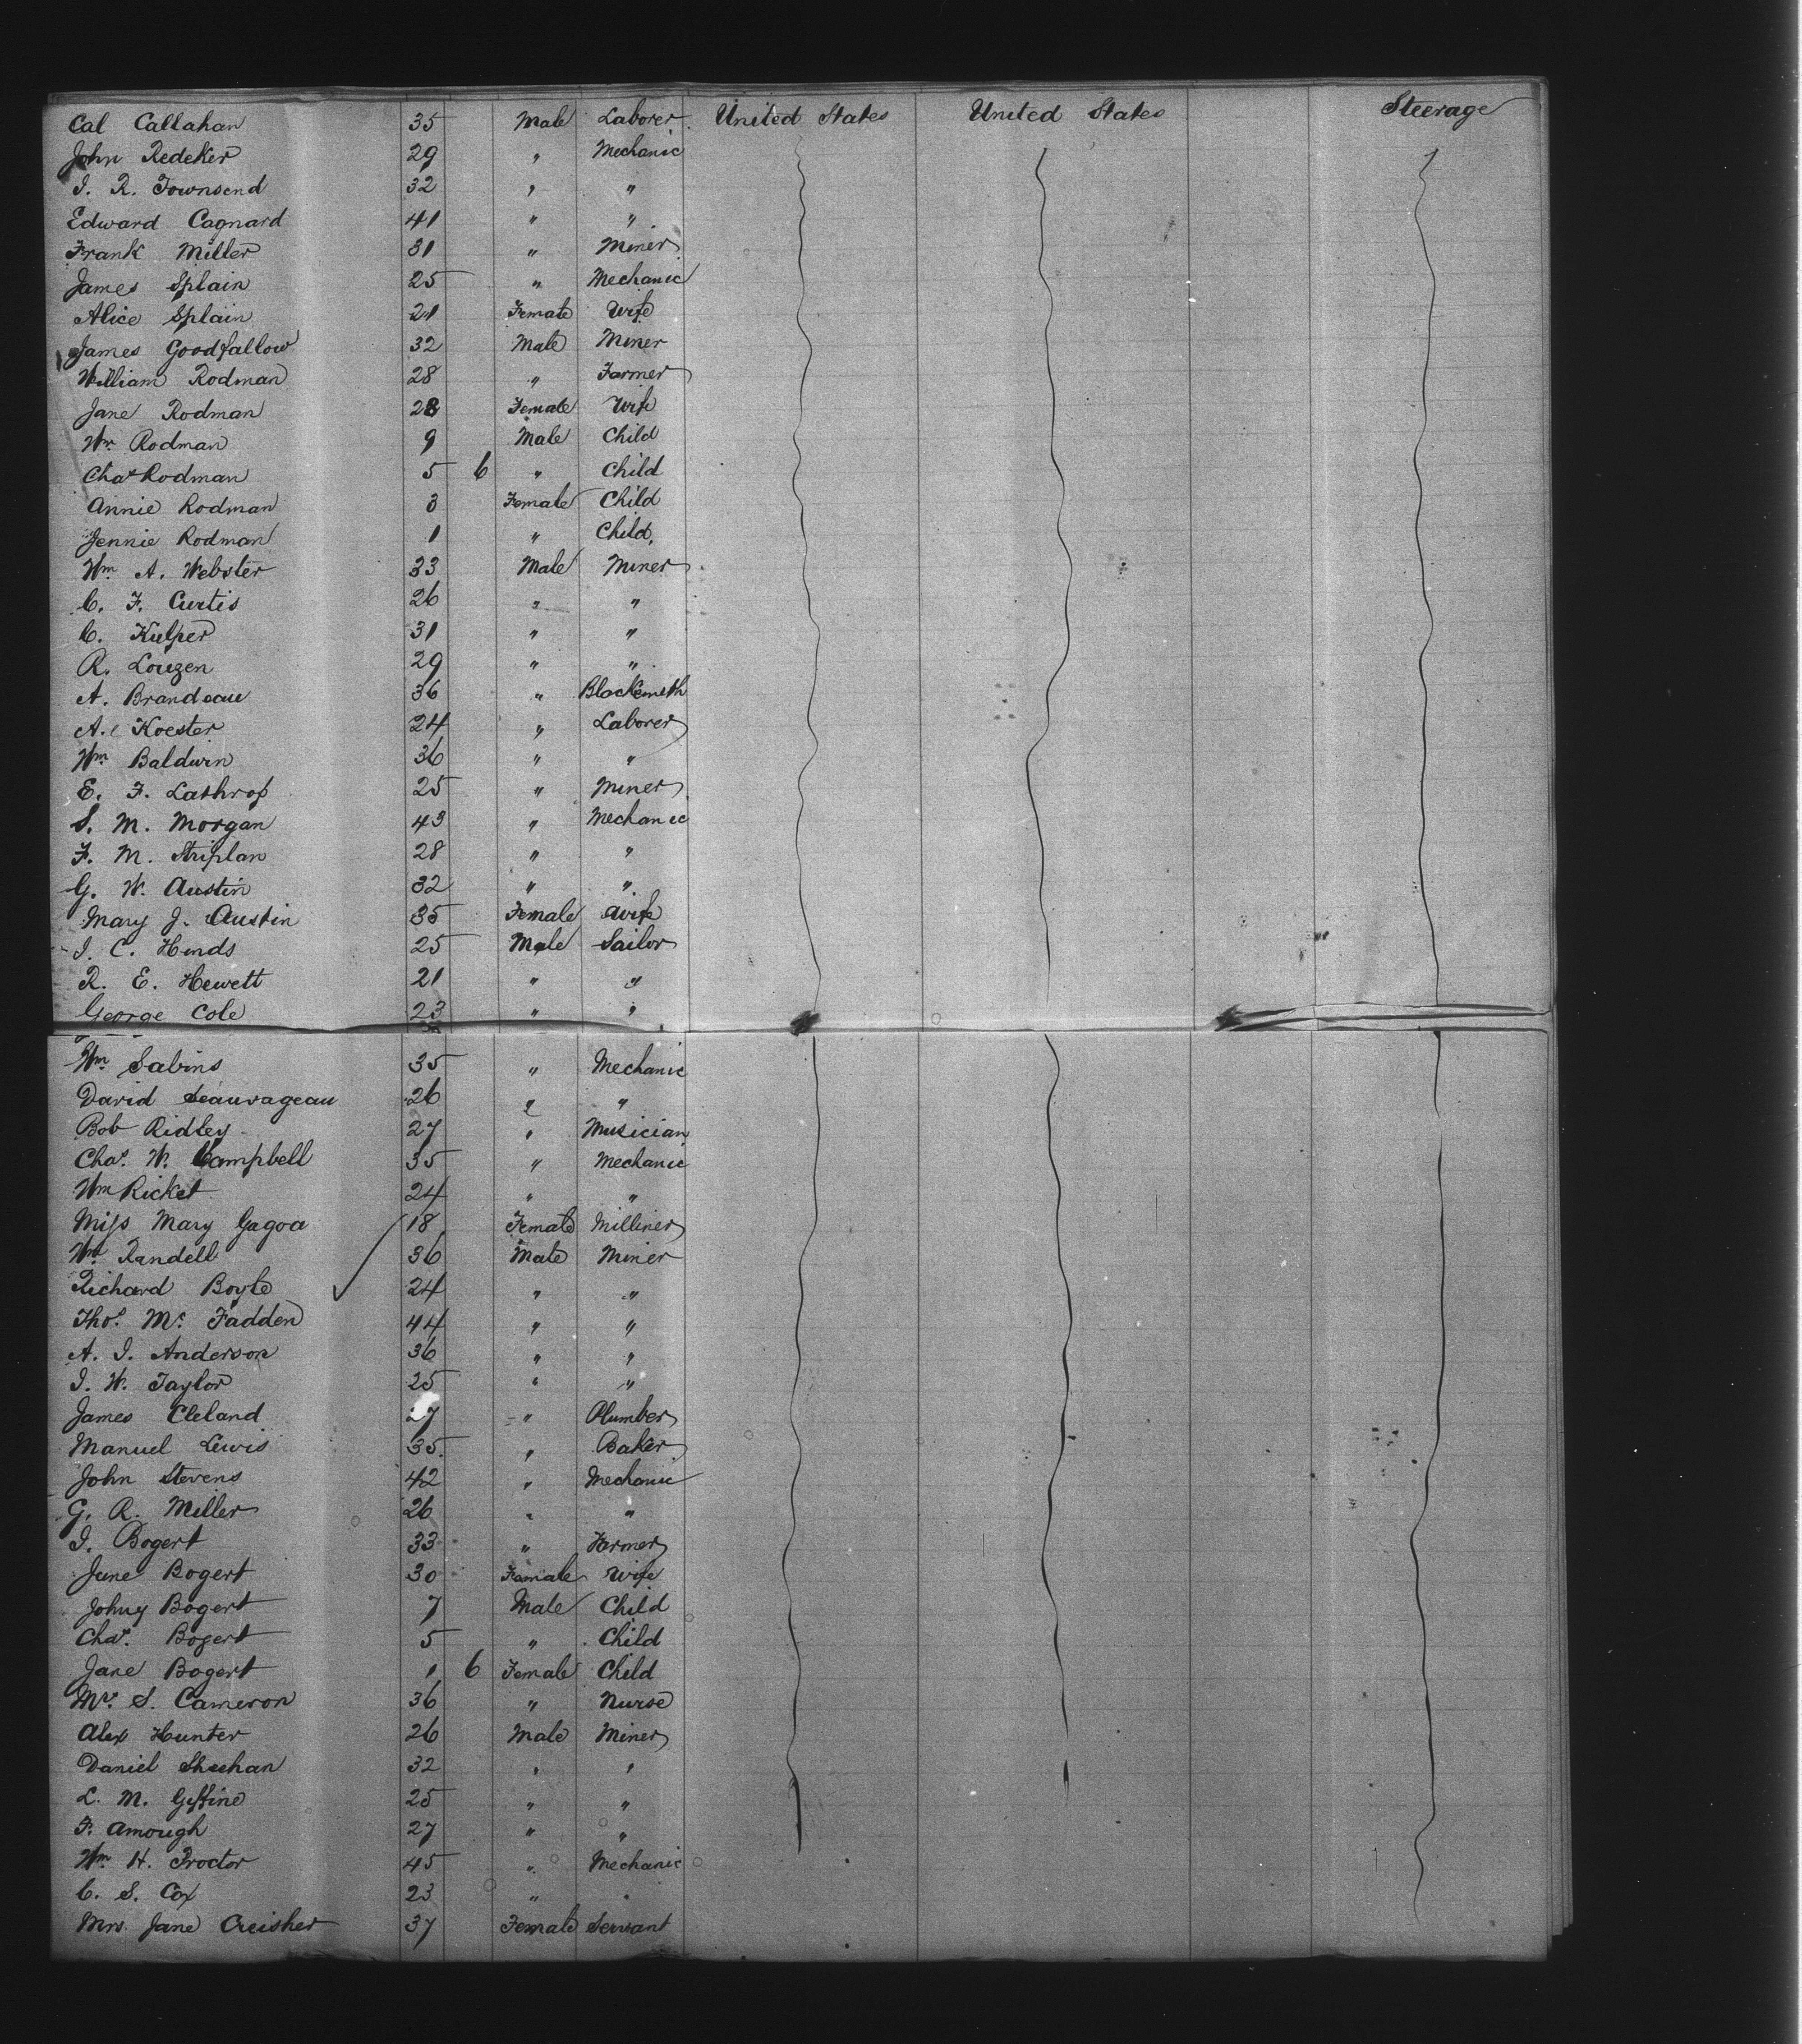 Cal Callahan 35 Male Laborer United States United States Steerage
John Redeker 29 " Mechanic
J. R. Townsend 32 " "
Edward Cagnard 41 " "
Frank Miller 31 " Miner
James Splain 25 " Mechanic
Alice Splain 21 Female Wife
James Goodfallow 32 Male Miner
William Rodman 28 " Farmer
Jane Rodman 28 Female Wife
Wm Rodman 9 Male Child
Chas Rodman 5 6 " Child
Annie Rodman 3 Female Child
Jennie Rodman 1 " Child.
Wm A. Webster 33 Male Miner
C. F. Curtis 26 " "
C. Kulper 31 " "
R. Louzen 29 " "
A. Brandeau 36 " Blacksmith
A. Koester 24 " Laborer
Wm Baldwin 36 " "
E. F. Lathrop 25 " Miner
S. M. Morgan 43 " Mechanic
F. M. Striplan 28 " "
G. W. Austin 32 " "
Mary J. Austin 35 Female Wife
J. C. Hinds 25 Male Sailor
R. E. Hewett 21 " "
George Cole 23 " "
Wm Sabins 35 " Mechanic
David Seauvageau 26 " "
Bob Ridley 27 " Musician
Chas. W. Campbell 35 " Mechanic
Wm Ricket 24 " "
Miss Mary Gagoa 18 Female Milliner
Wm Randell 36 Male Miner
Richard Boyle 24 " "
Thos. Mc. Fadden 44 " "
A. J. Anderson 36 " "
J. W. Taylor 25 " "
James Cleland 27 " Plumber
Manuel Lewis 35 " Baker
John Stevens 42 " Mechanic
G. R. Miller 26 " "
J. Bogert 33 " Farmer
Jane Bogert 30 Female Wife
Johny Bogert 7 Male Child
Chas. Bogert 5 " Child
Jane Bogert 1 6 Female Child
Mrs. S. Cameron 36 " Nurse
Alex Hunter 26 Male Miner
Daniel Sheehan 32 " "
L. M. Giffine 25 " "
F. Amough 27 " "
Wm H. Proctor 45 " Mechanic
C. S. Cox 23 " "
Mrs. Jane Creisher 37 Female Servant